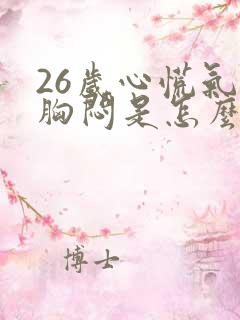 26歲心慌氣
胸悶是怎麼
博士